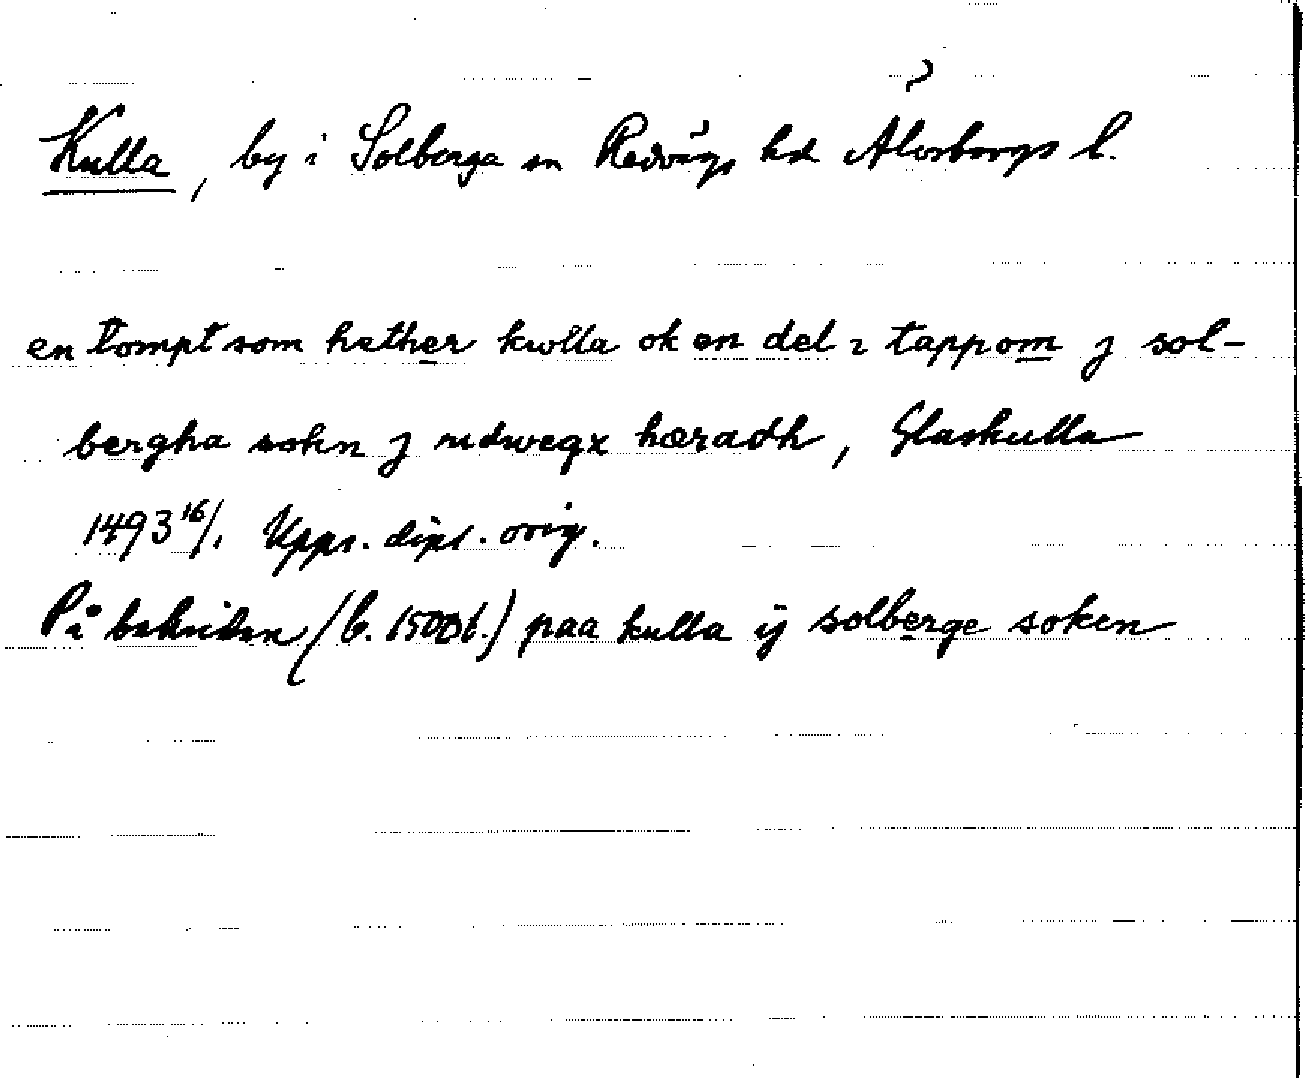 Kulla, by i Solberga sn Redvägs hd Älvsborgs l.
en tompt som hether kwlla ok en del i tappom j sol-
bergha sokn j redwegx hæradh, Glaskulla
1493 16/1. Upps. dipl. orig.
På baksidan (b. 1500t.) paa kulla ij solberge soken